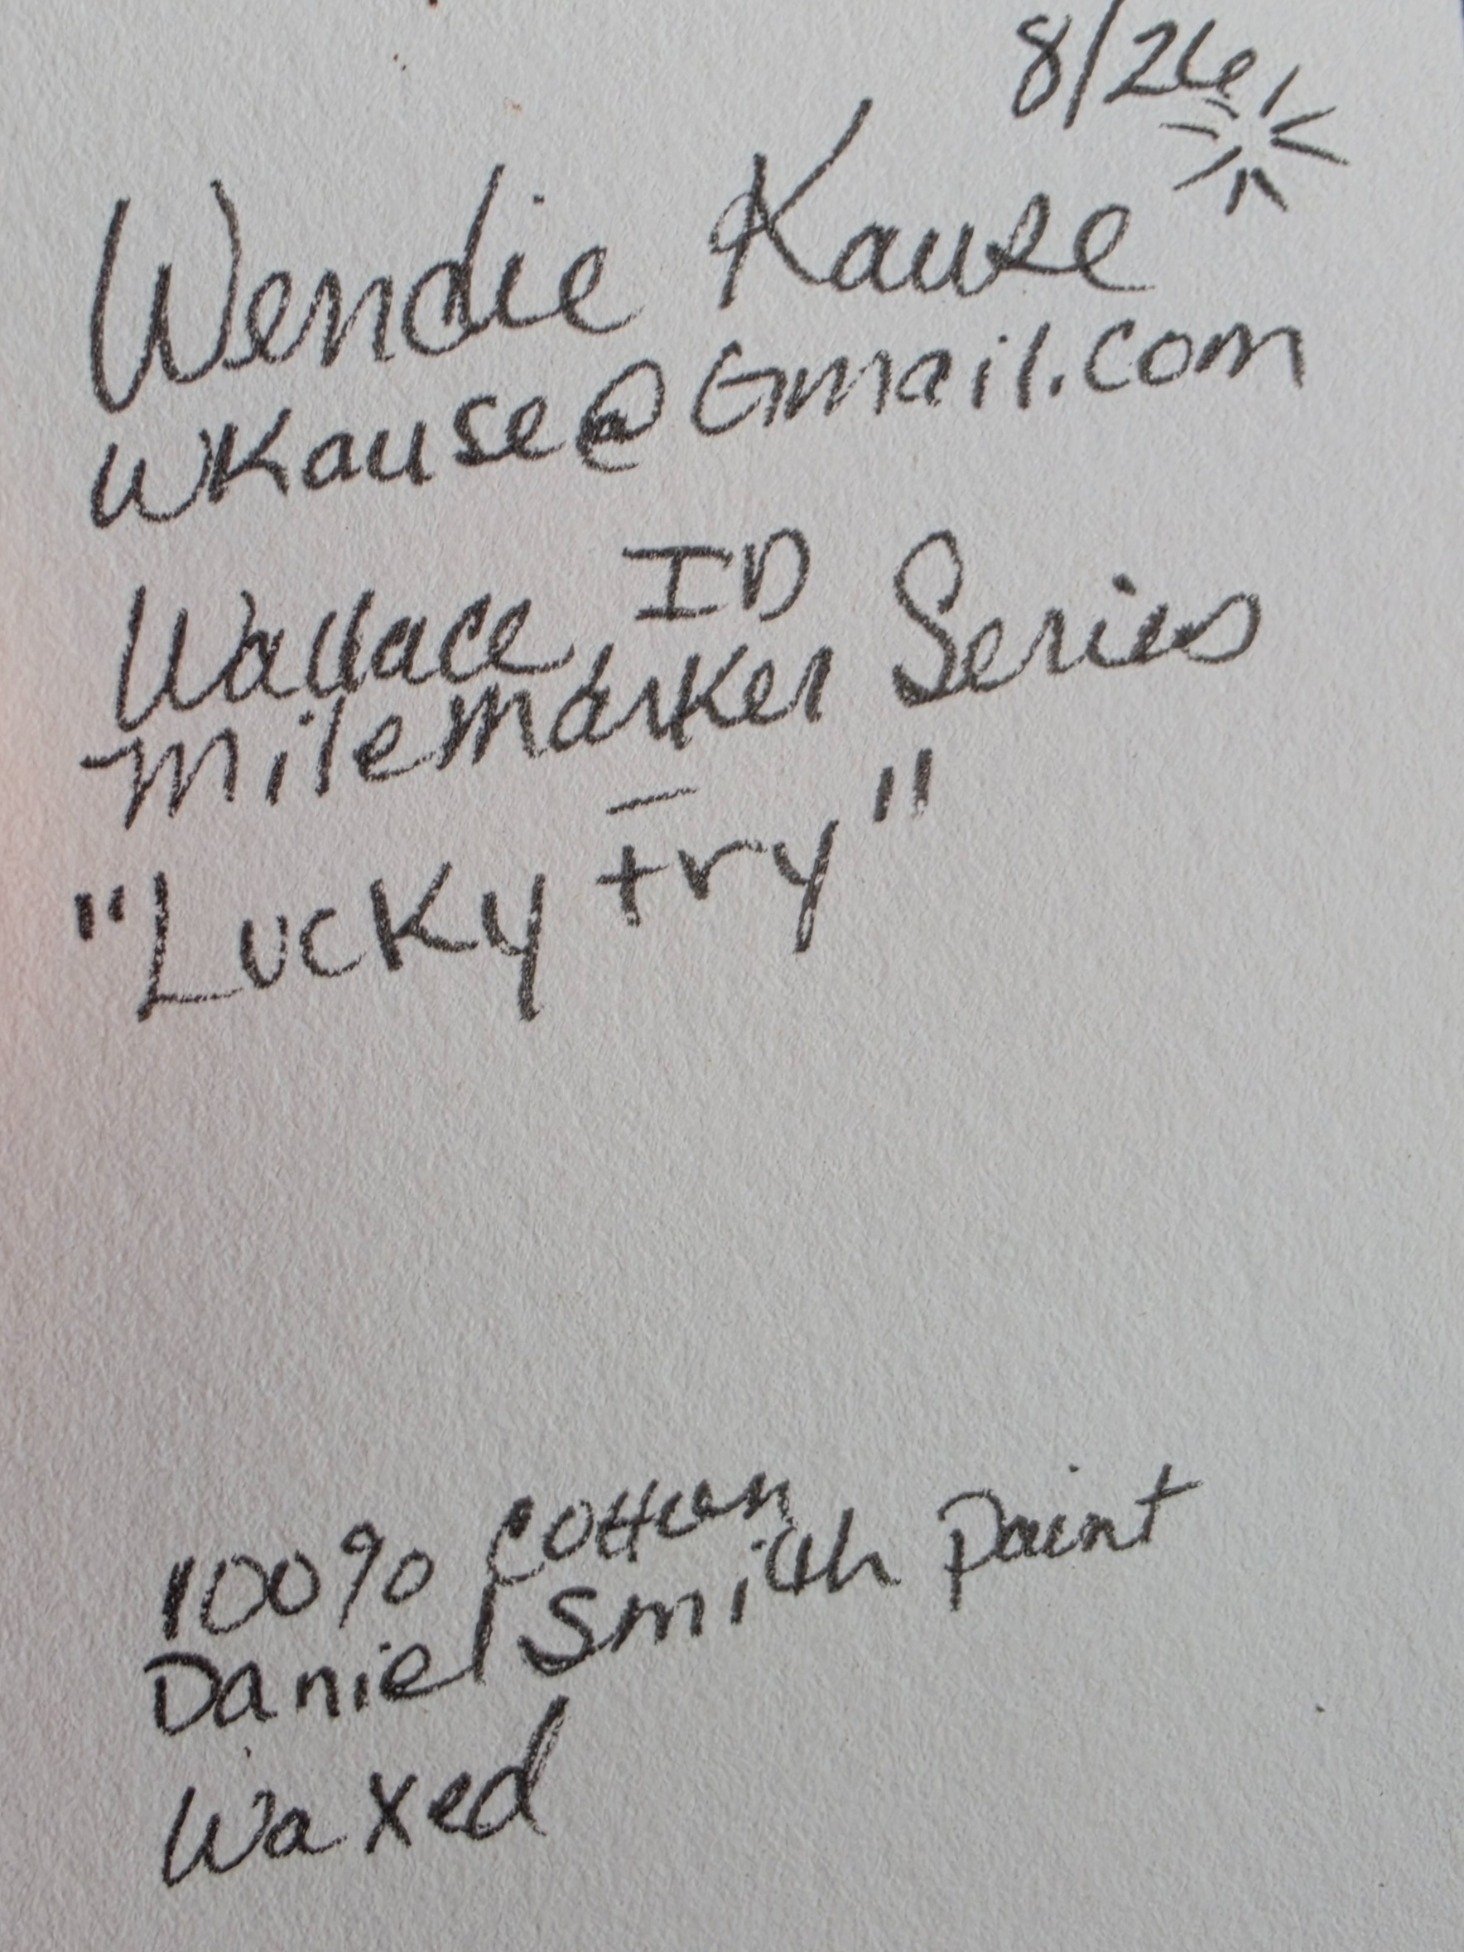 8/26
Wendie Kause
WKause@Gmail.com
Wallace ID
Milemarker Series
"Lucky Fry"
100% Cotton
Daniel Smith Paint
Waxed